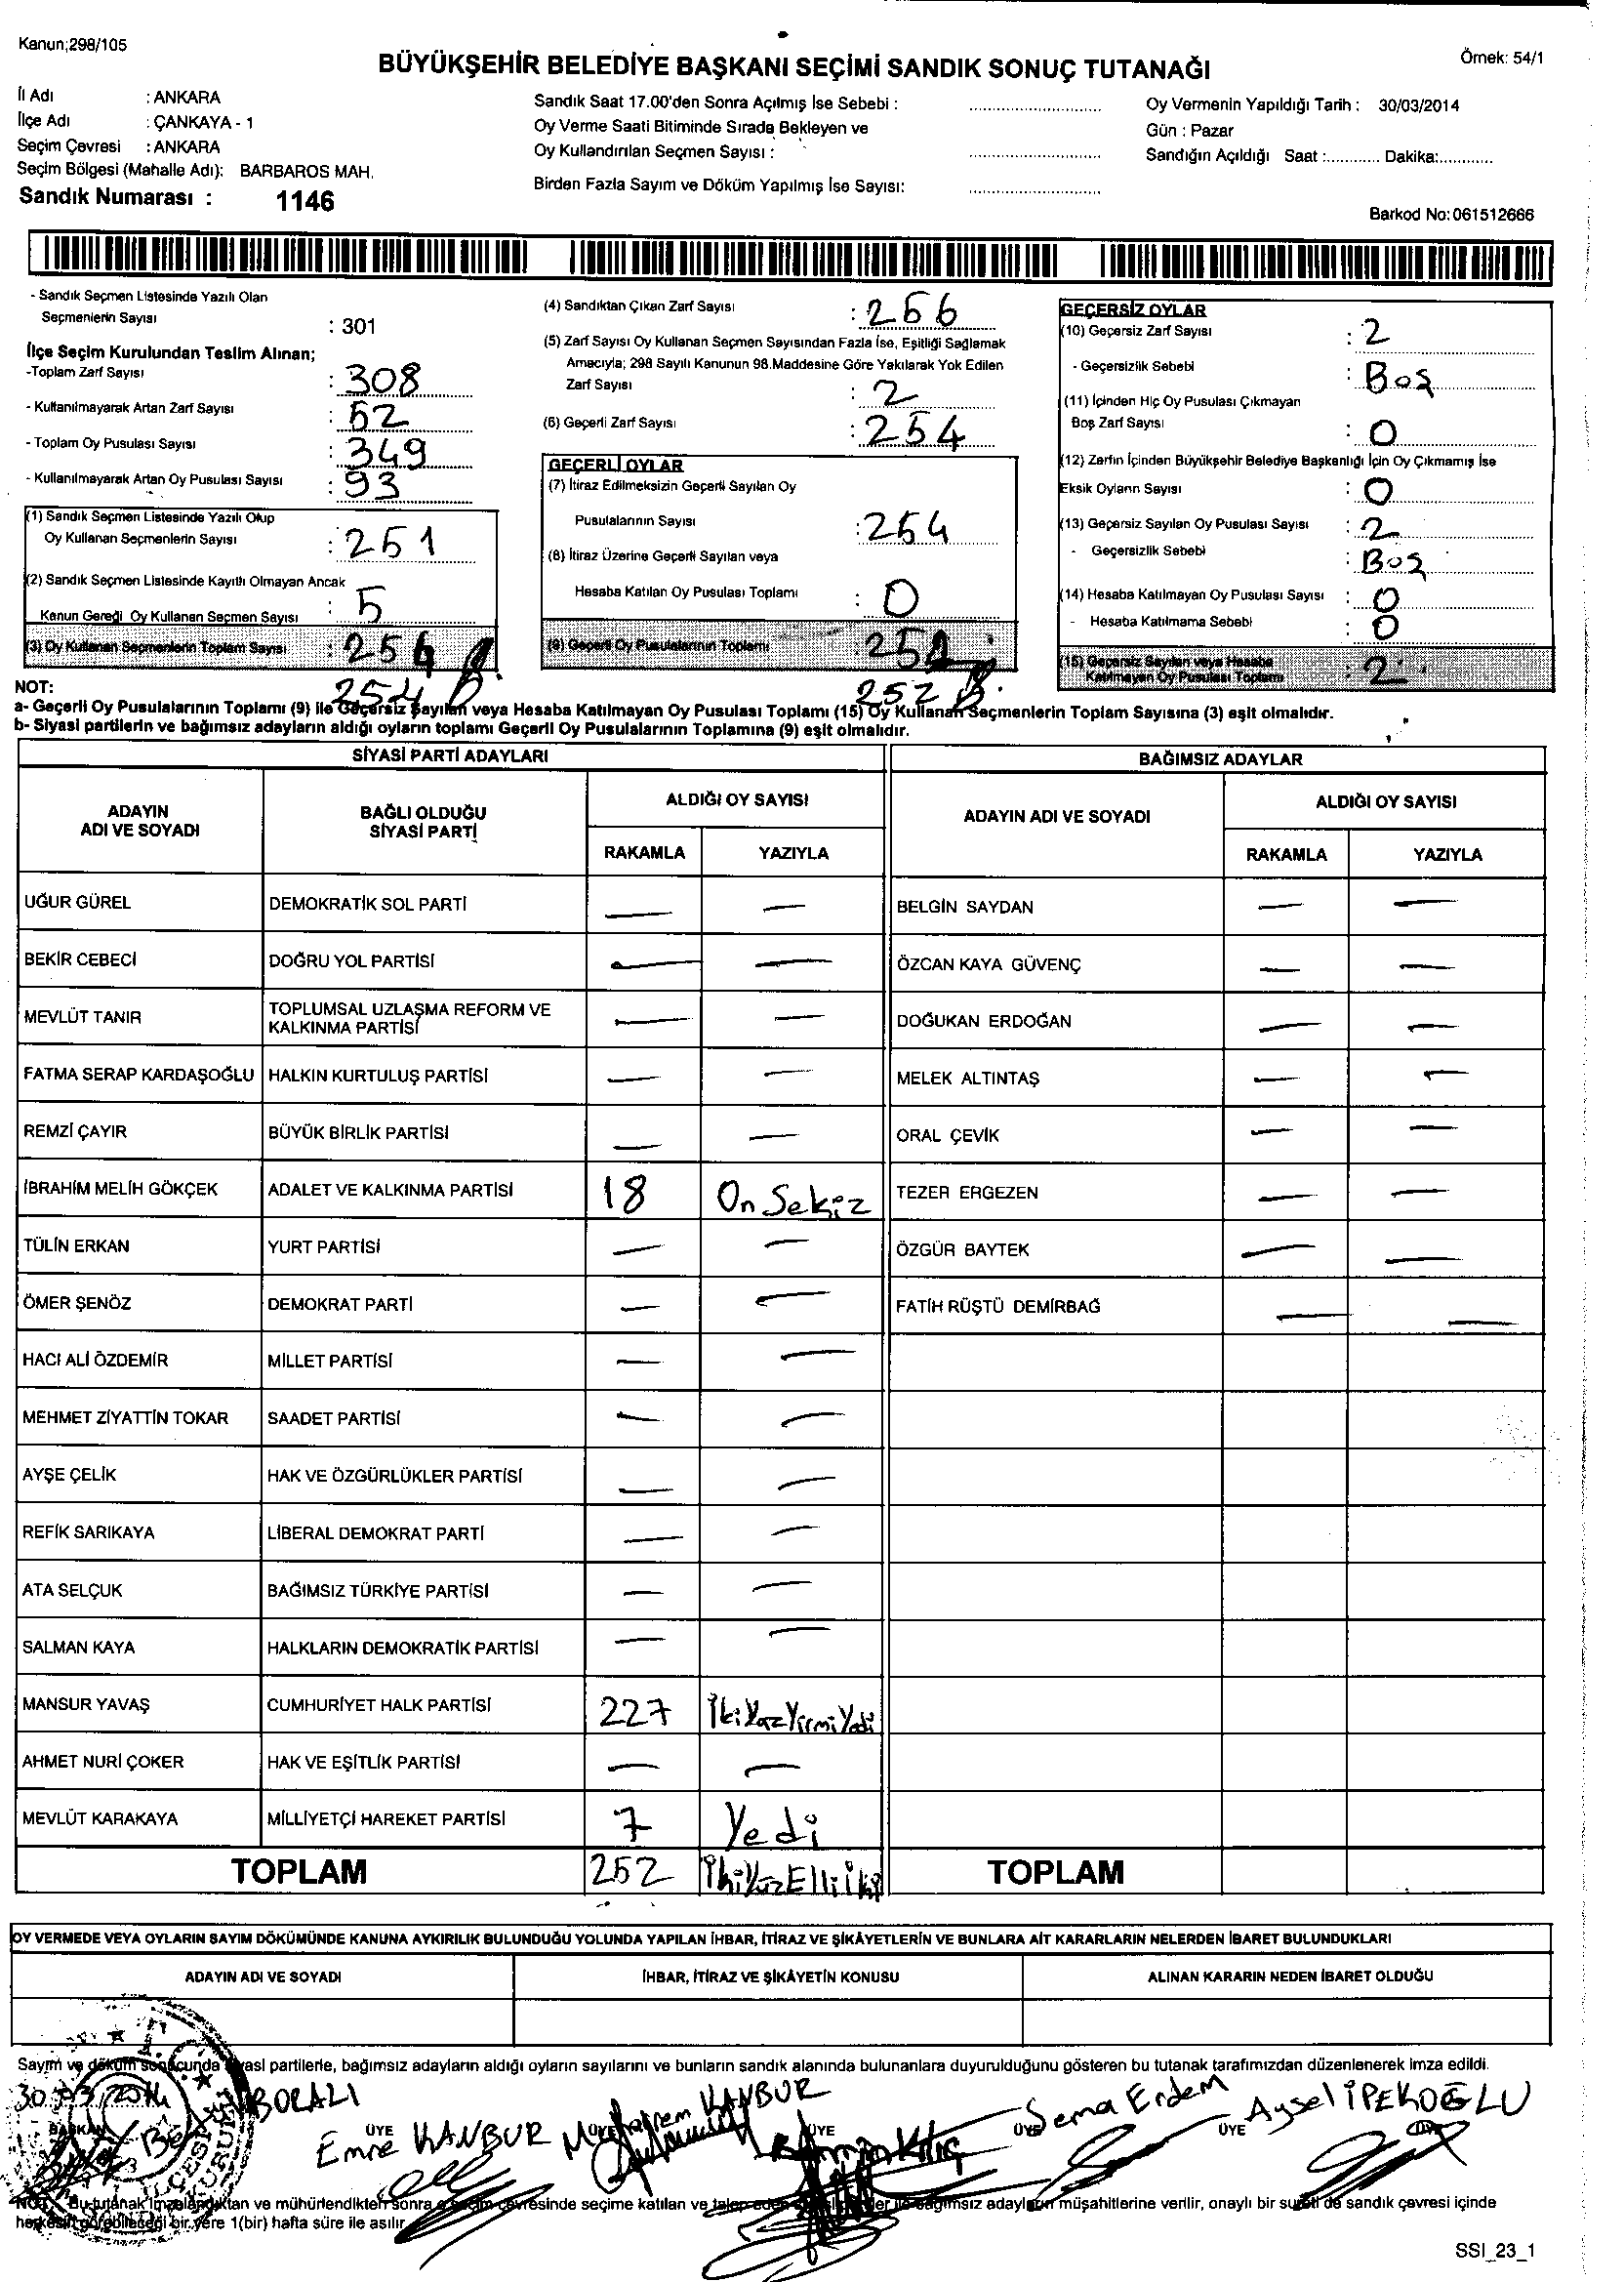 Kanun;298/105
BÜYÜKŞEHİR BELEDİYE BAŞKANI SEÇİMİ SANDIK SONUÇ TUTANAĞI
Örnek: 54/1
İl Adı : ANKARA
İlçe Adı : ÇANKAYA - 1
Seçim Çevresi : ANKARA
Seçim Bölgesi (Mahalle Adı): BARBAROS MAH.
Sandık Numarası : 1146
Sandık Saat 17.00'den Sonra Açılmış İse Sebebi :
Oy Verme Saati Bitiminde Sırada Bekleyen ve
Oy Kullandırılan Seçmen Sayısı :
Birden Fazla Sayım ve Döküm Yapılmış İse Sayısı:
Oy Vermenin Yapıldığı Tarih : 30/03/2014
Gün : Pazar
Sandığın Açıldığı Saat :........... Dakika:...........
Barkod No:061512666
- Sandık Seçmen Listesinde Yazılı Olan
Seçmenlerin Sayısı : 301
İlçe Seçim Kurulundan Teslim Alınan;
-Toplam Zarf Sayısı : 308
- Kullanılmayarak Artan Zarf Sayısı : 52
- Toplam Oy Pusulası Sayısı : 349
- Kullanılmayarak Artan Oy Pusulası Sayısı : 93
(1) Sandık Seçmen Listesinde Yazılı Olup
Oy Kullanan Seçmenlerin Sayısı : 251
(2) Sandık Seçmen Listesinde Kayıtlı Olmayan Ancak
Kanun Gereği Oy Kullanan Seçmen Sayısı : 5
(3) Oy Kullanan Seçmenlerin Toplam Sayısı : 254
254
(4) Sandıktan Çıkan Zarf Sayısı : 256
(5) Zarf Sayısı Oy Kullanan Seçmen Sayısından Fazla İse, Eşitliği Sağlamak
Amacıyla; 298 Sayılı Kanunun 98.Maddesine Göre Yakılarak Yok Edilen
Zarf Sayısı : 2
(6) Geçerli Zarf Sayısı : 254
GEÇERLİ OYLAR
(7) İtiraz Edilmeksizin Geçerli Sayılan Oy
Pusulalarının Sayısı : 254
(8) İtiraz Üzerine Geçerli Sayılan veya
Hesaba Katılan Oy Pusulası Toplamı : 0
(9) Geçerli Oy Pusulalarının Toplamı : 252
252
GEÇERSİZ OYLAR
(10) Geçersiz Zarf Sayısı : 2
- Geçersizlik Sebebi : Boş
(11) İçinden Hiç Oy Pusulası Çıkmayan
Boş Zarf Sayısı : 0
(12) Zarfın İçinden Büyükşehir Belediye Başkanlığı İçin Oy Çıkmamış İse
Eksik Oyların Sayısı : 0
(13) Geçersiz Sayılan Oy Pusulası Sayısı : 2
- Geçersizlik Sebebi : Boş
(14) Hesaba Katılmayan Oy Pusulası Sayısı : 0
- Hesaba Katılmama Sebebi : 0
(15) Geçersiz Sayılan veya Hesaba
Katılmayan Oy Pusulası Toplamı : 2
NOT:
a- Geçerli Oy Pusulalarının Toplamı (9) ile Geçersiz Sayılan veya Hesaba Katılmayan Oy Pusulası Toplamı (15) Oy Kullanan Seçmenlerin Toplam Sayısına (3) eşit olmalıdır.
b- Siyasi partilerin ve bağımsız adayların aldığı oyların toplamı Geçerli Oy Pusulalarının Toplamına (9) eşit olmalıdır.
SİYASİ PARTİ ADAYLARI BAĞIMSIZ ADAYLAR
ADAYIN ADI VE SOYADI BAĞLI OLDUĞU SİYASİ PARTİ ALDIĞI OY SAYISI ADAYIN ADI VE SOYADI ALDIĞI OY SAYISI
RAKAMLA YAZIYLA RAKAMLA YAZIYLA
UĞUR GÜREL DEMOKRATİK SOL PARTİ — — BELGİN SAYDAN — —
BEKİR CEBECİ DOĞRU YOL PARTİSİ — — ÖZCAN KAYA GÜVENÇ — —
MEVLÜT TANIR TOPLUMSAL UZLAŞMA REFORM VE KALKINMA PARTİSİ — — DOĞUKAN ERDOĞAN — —
FATMA SERAP KARDAŞOĞLU HALKIN KURTULUŞ PARTİSİ — — MELEK ALTINTAŞ — —
REMZİ ÇAYIR BÜYÜK BİRLİK PARTİSİ — — ORAL ÇEVİK — —
İBRAHİM MELİH GÖKÇEK ADALET VE KALKINMA PARTİSİ 18 On Sekiz TEZER ERGEZEN — —
TÜLİN ERKAN YURT PARTİSİ — — ÖZGÜR BAYTEK — —
ÖMER ŞENÖZ DEMOKRAT PARTİ — — FATİH RÜŞTÜ DEMİRBAĞ — —
HACI ALİ ÖZDEMİR MİLLET PARTİSİ — —
MEHMET ZİYATTİN TOKAR SAADET PARTİSİ — —
AYŞE ÇELİK HAK VE ÖZGÜRLÜKLER PARTİSİ — —
REFİK SARIKAYA LİBERAL DEMOKRAT PARTİ — —
ATA SELÇUK BAĞIMSIZ TÜRKİYE PARTİSİ — —
SALMAN KAYA HALKLARIN DEMOKRATİK PARTİSİ — —
MANSUR YAVAŞ CUMHURİYET HALK PARTİSİ 227 İkiYüzYirmiYedi
AHMET NURİ ÇOKER HAK VE EŞİTLİK PARTİSİ — —
MEVLÜT KARAKAYA MİLLİYETÇİ HAREKET PARTİSİ 7 Yedi
TOPLAM 252 İkiYüzElliİki TOPLAM
OY VERMEDE VEYA OYLARIN SAYIM DÖKÜMÜNDE KANUNA AYKIRILIK BULUNDUĞU YOLUNDA YAPILAN İHBAR, İTİRAZ VE ŞİKÂYETLERİN VE BUNLARA AİT KARARLARIN NELERDEN İBARET BULUNDUKLARI
ADAYIN ADI VE SOYADI İHBAR, İTİRAZ VE ŞİKÂYETİN KONUSU ALINAN KARARIN NEDEN İBARET OLDUĞU
Sayım ve döküm sonucunda siyasi partilerle, bağımsız adayların aldığı oyların sayılarını ve bunların sandık alanında bulunanlara duyurulduğunu gösteren bu tutanak tarafımızdan düzenlenerek imza edildi.
30.03.2014
BAŞKAN ÜYE ÜYE ÜYE ÜYE ÜYE
BORALI Emre KANBUR KANBUR Kılıç Sema Erdem Aysel İPEKOĞLU
NOT: Bu tutanak imzalandıktan ve mühürlendikten sonra o seçim çevresinde seçime katılan ve talep eden siyasi partiler ile bağımsız adayların müşahitlerine verilir, onaylı bir sureti de sandık çevresi içinde
herkesin görebileceği bir yere 1(bir) hafta süre ile asılır
SSI_23_1